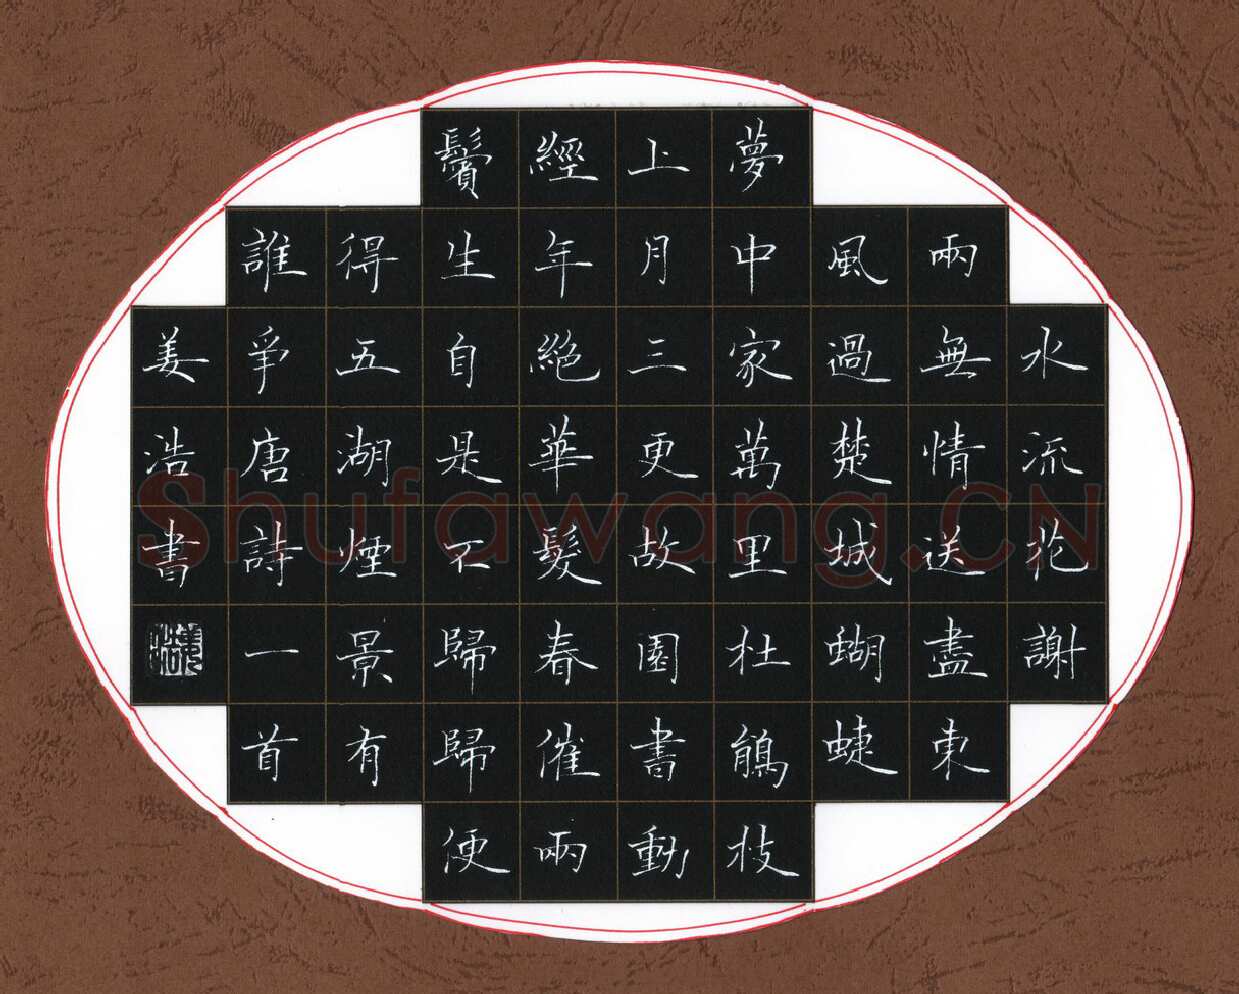 水流花謝
兩無情送盡東
風過楚城蝴蜨
夢中家萬里杜鵑枝
上月三更故園書動
經年絕華髮春催兩
鬢生自是不歸歸便
得五湖煙景有
誰爭唐詩一首
姜浩書
Shufawang.CN